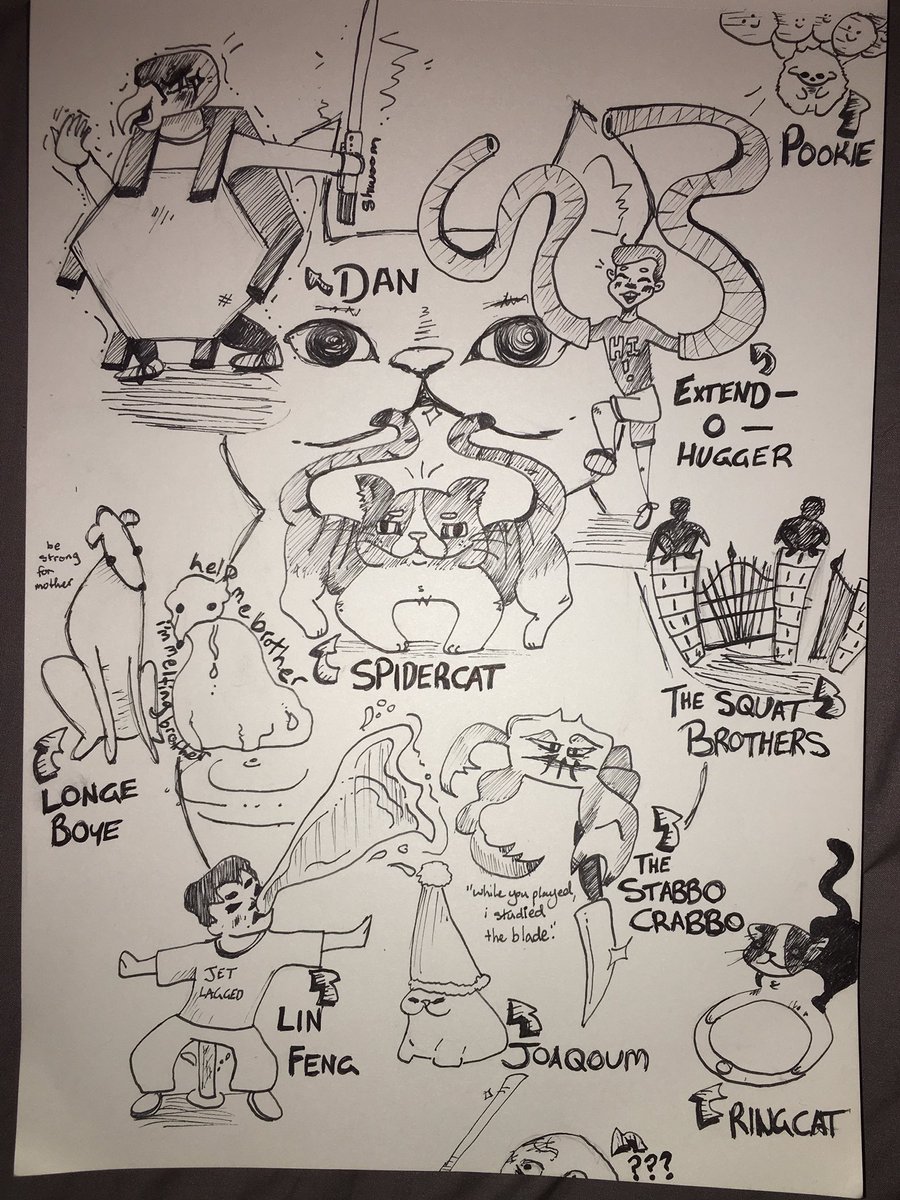 POOKIE
shwoom
#
DAN
HI!
EXTEND-
O-
HUGGER
be
strong
for
mother
help me brother
i'm melting brother
SPIDERCAT
THE SQUAT
BROTHERS
LONGE
BOYE
"while you played,
i studied
the blade".
THE
STABBO
CRABBO
JET
LAGGED
LIN
FENG
JOAQOUM
RINGCAT
???